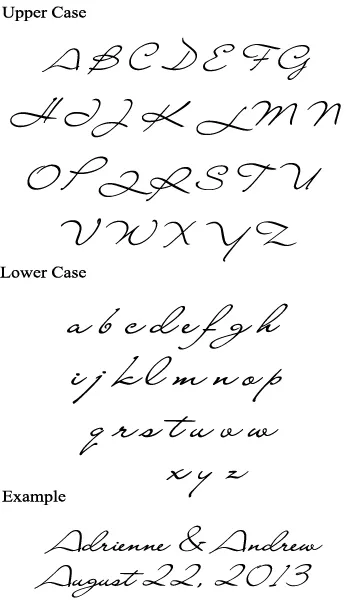 Upper Case
A B C D E F G
H I J K L M N
O P Q R S T U
V W X Y Z
Lower Case
a b c d e f g h
i j k l m n o p
q r s t u v w
x y z
Example
Adrienne & Andrew
August 22, 2013